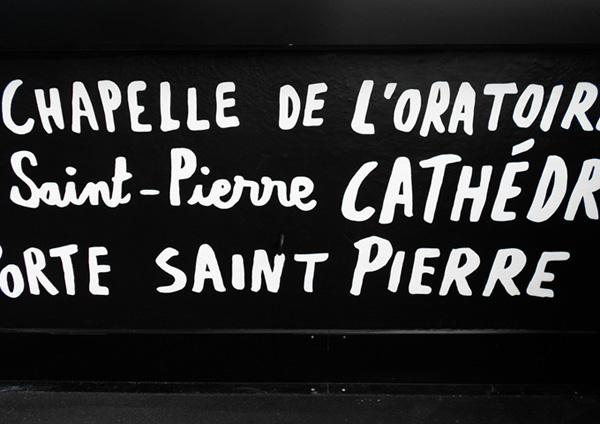 CHAPELLE DE L'ORATOIR
Saint-Pierre CATHÉDR
PORTE SAINT PIERRE